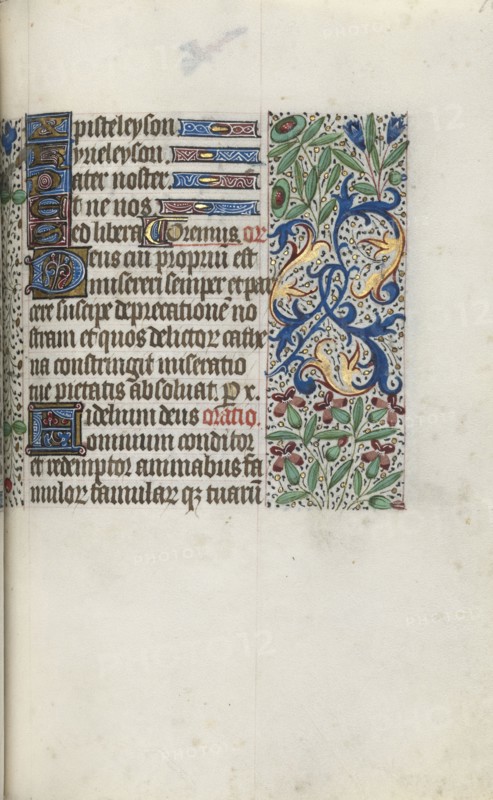 Xpisteleyson
Kyrieleyson.
Pater noster.
Et ne nos
Sed libera Oremus. or
Deus cui propriū est
misereri semper et par
cere suscipe deprecationē no
stram et quos delictor cathe
na constringit miseratio
tue pietatis absoluat. P x.
Fidelium deus oratio.
omnium conditor
et redemptor animabus fa
mulor famular qȝ tuarū